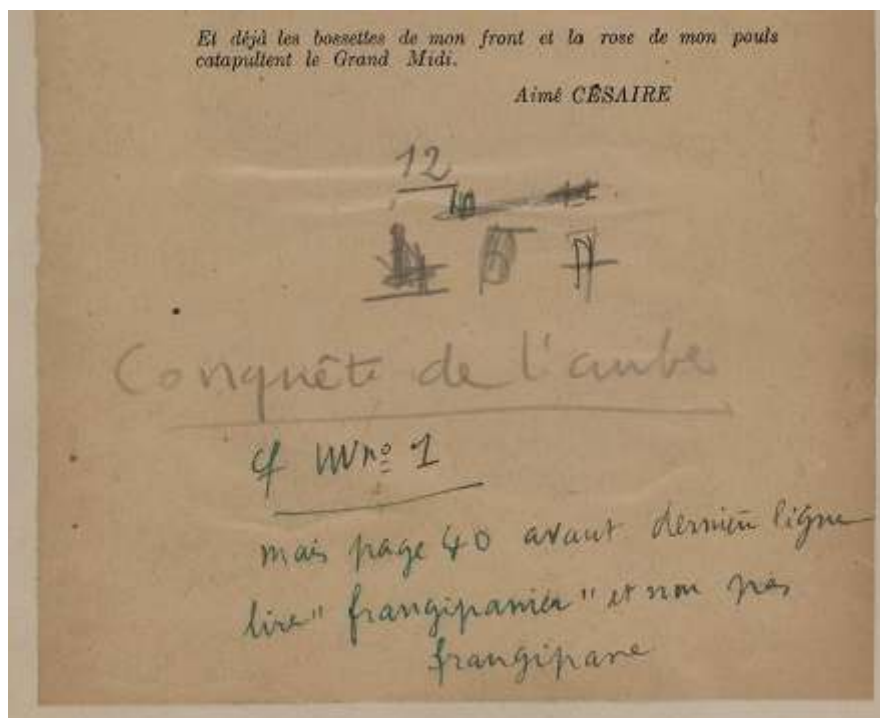 Et déjà les bossettes de mon front et la rose de mon pouls
catapultent le Grand Midi.
Aimé CÉSAIRE
12
Conquête de l'aube
cf VVV nº 1
mais page 40 avant dernière ligne
lire "frangipanier" et non pas
frangipane